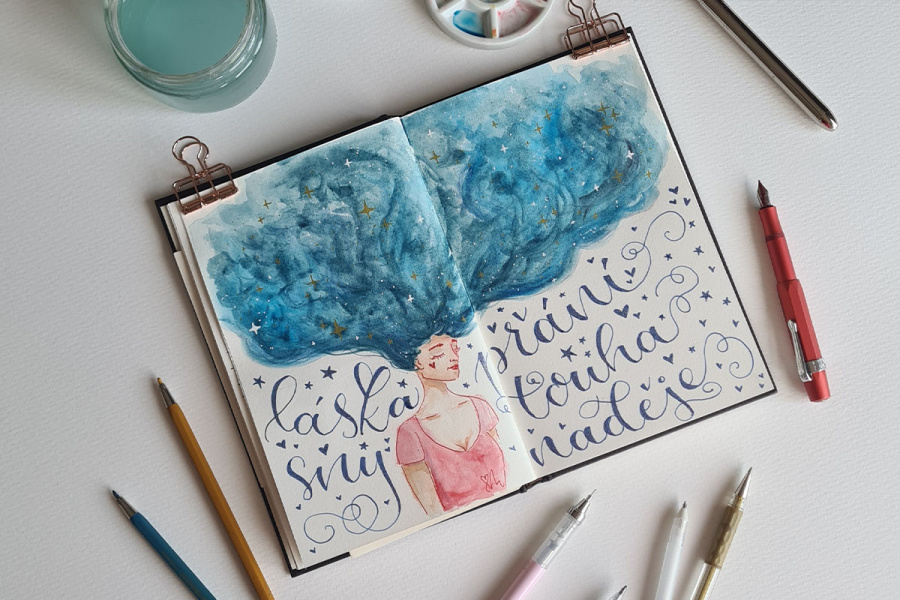 láska
sny
přání
touha
naděje